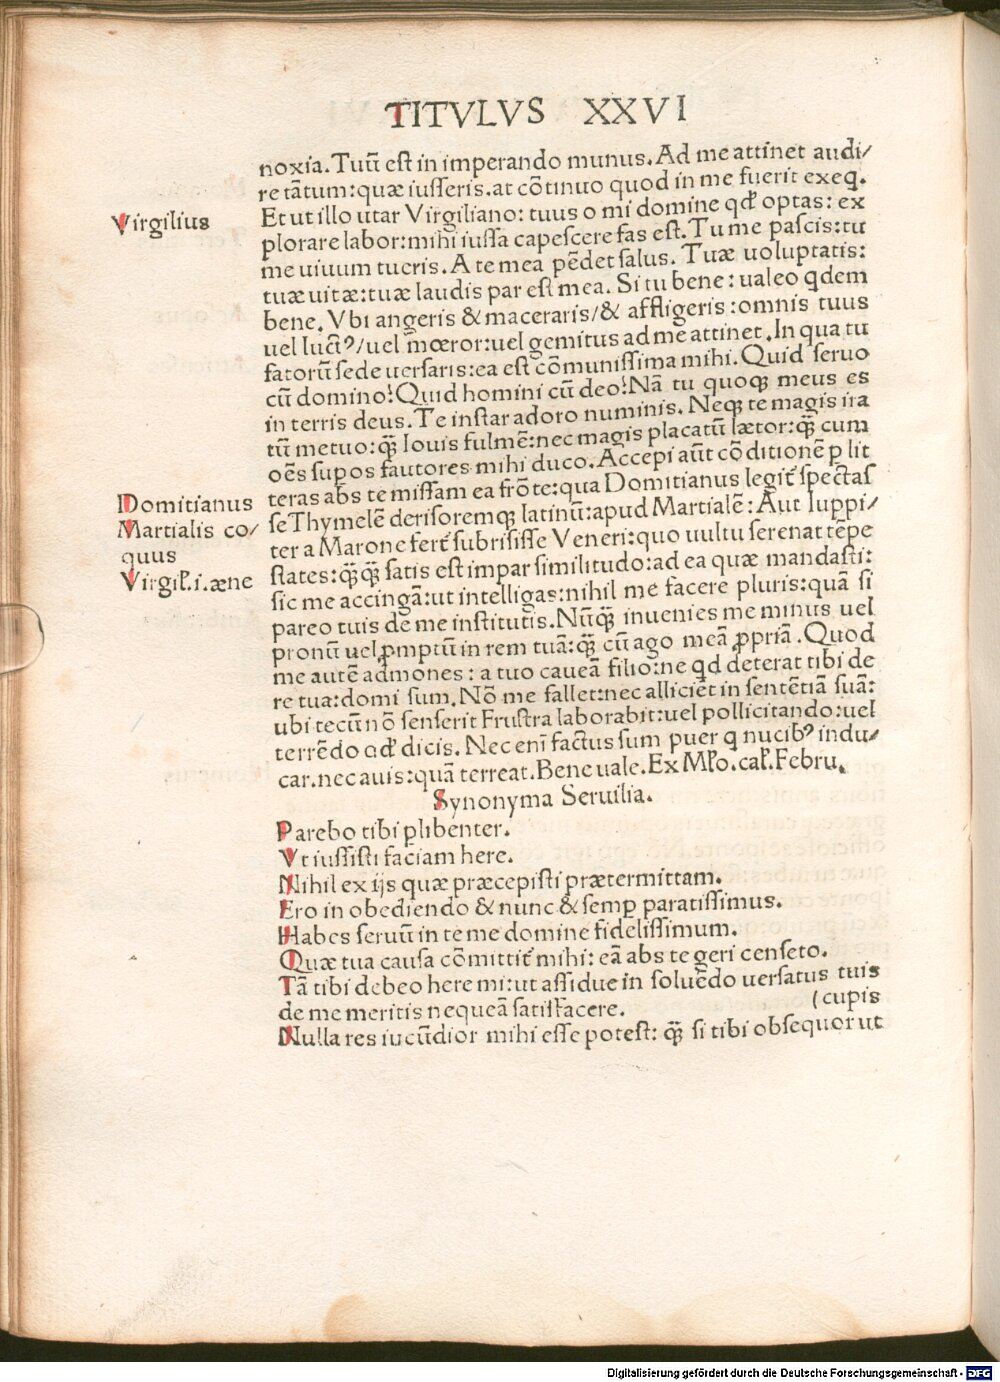 TITVLVS XXVI
noxia. Tuū est in imperando munus. Ad me attinet audi/
re tātum: quæ iusseris. at cōtinuo quod in me fuerit exeq.
Virgilius
Et ut illo utar Virgiliano: tuus o mi domine qd optas: ex
plorare labor: mihi iussa capescere fas est. Tu me pascis: tu
me uiuum tueris. A te mea pēdet salus. Tuæ uoluptatis:
tuæ uitæ: tuæ laudis par est mea. Si tu bene: ualeo qdem
bene. Vbi angeris & maceraris/& affligeris: omnis tuus
uel luctꝰ/uel mœror: uel gemitus ad me attinet. In qua tu
fatorū sede uersaris: ea est cōmunissima mihi. Quid seruo
cū domino? Quid homini cū deo? Nā tu quoqꝫ meus es
in terris deus. Te instar adoro numinis. Neqꝫ te magis ira
tū metuo: qꝫ̄ Iouis fulmē: nec magis placatū lætor: qꝫ̄ cum
oēs supos fautores mihi duco. Accepi aūt cōditionē p lit
Domitianus
Martialis co/
quus
Virgil. i. æne
teras abs te missam ea frōte: qua Domitianus legit̄ spectas
se Thymelē derisoremqꝫ latinū: apud Martialē: Aut Iuppi/
ter a Marone fert̄ subrisisse Veneri: quo uultu serenat tēpe
states: qꝫ̄qꝫ̄ satis est impar similitudo: ad ea quæ mandasti:
sic me accingā: ut intelligas: nihil me facere pluris: quā si
pareo tuis de me institutis. Nūqꝫ̄ inuenies me minus uel
pronū uel promptū in rem tuā: qꝫ̄ cū ago meā propriā. Quod
me autē admones: a tuo caueā filio: ne qd deterat tibi de
re tua: domi sum. Nō me fallet: nec alliciet in sentētiā suā:
ubi tecū nō senserit Frustra laborabit: uel pollicitando: uel
terrēdo qd dicis. Nec eni factus sum puer q nucibꝰ indu/
car. nec auis: quā terreat. Bene uale. Ex Mlo. cal. Febru.
Synonyma Seruilia.
Parebo tibi plibenter.
Vt iussisti faciam here.
Nihil ex ijs quæ præcepisti prætermittam.
Ero in obediendo & nunc & semp paratissimus.
Habes seruū in te me domine fidelissimum.
Quæ tua causa cōmittit̄ mihi: eā abs te geri censeto.
Tā tibi debeo here mi: ut assidue in soluēdo uersatus tuis
de me meritis nequeā satisfacere.
(cupis
Nulla res iucūdior mihi esse potest: qꝫ̄ si tibi obsequor ut
Digitalisierung gefördert durch die Deutsche Forschungsgemeinschaft - DFG